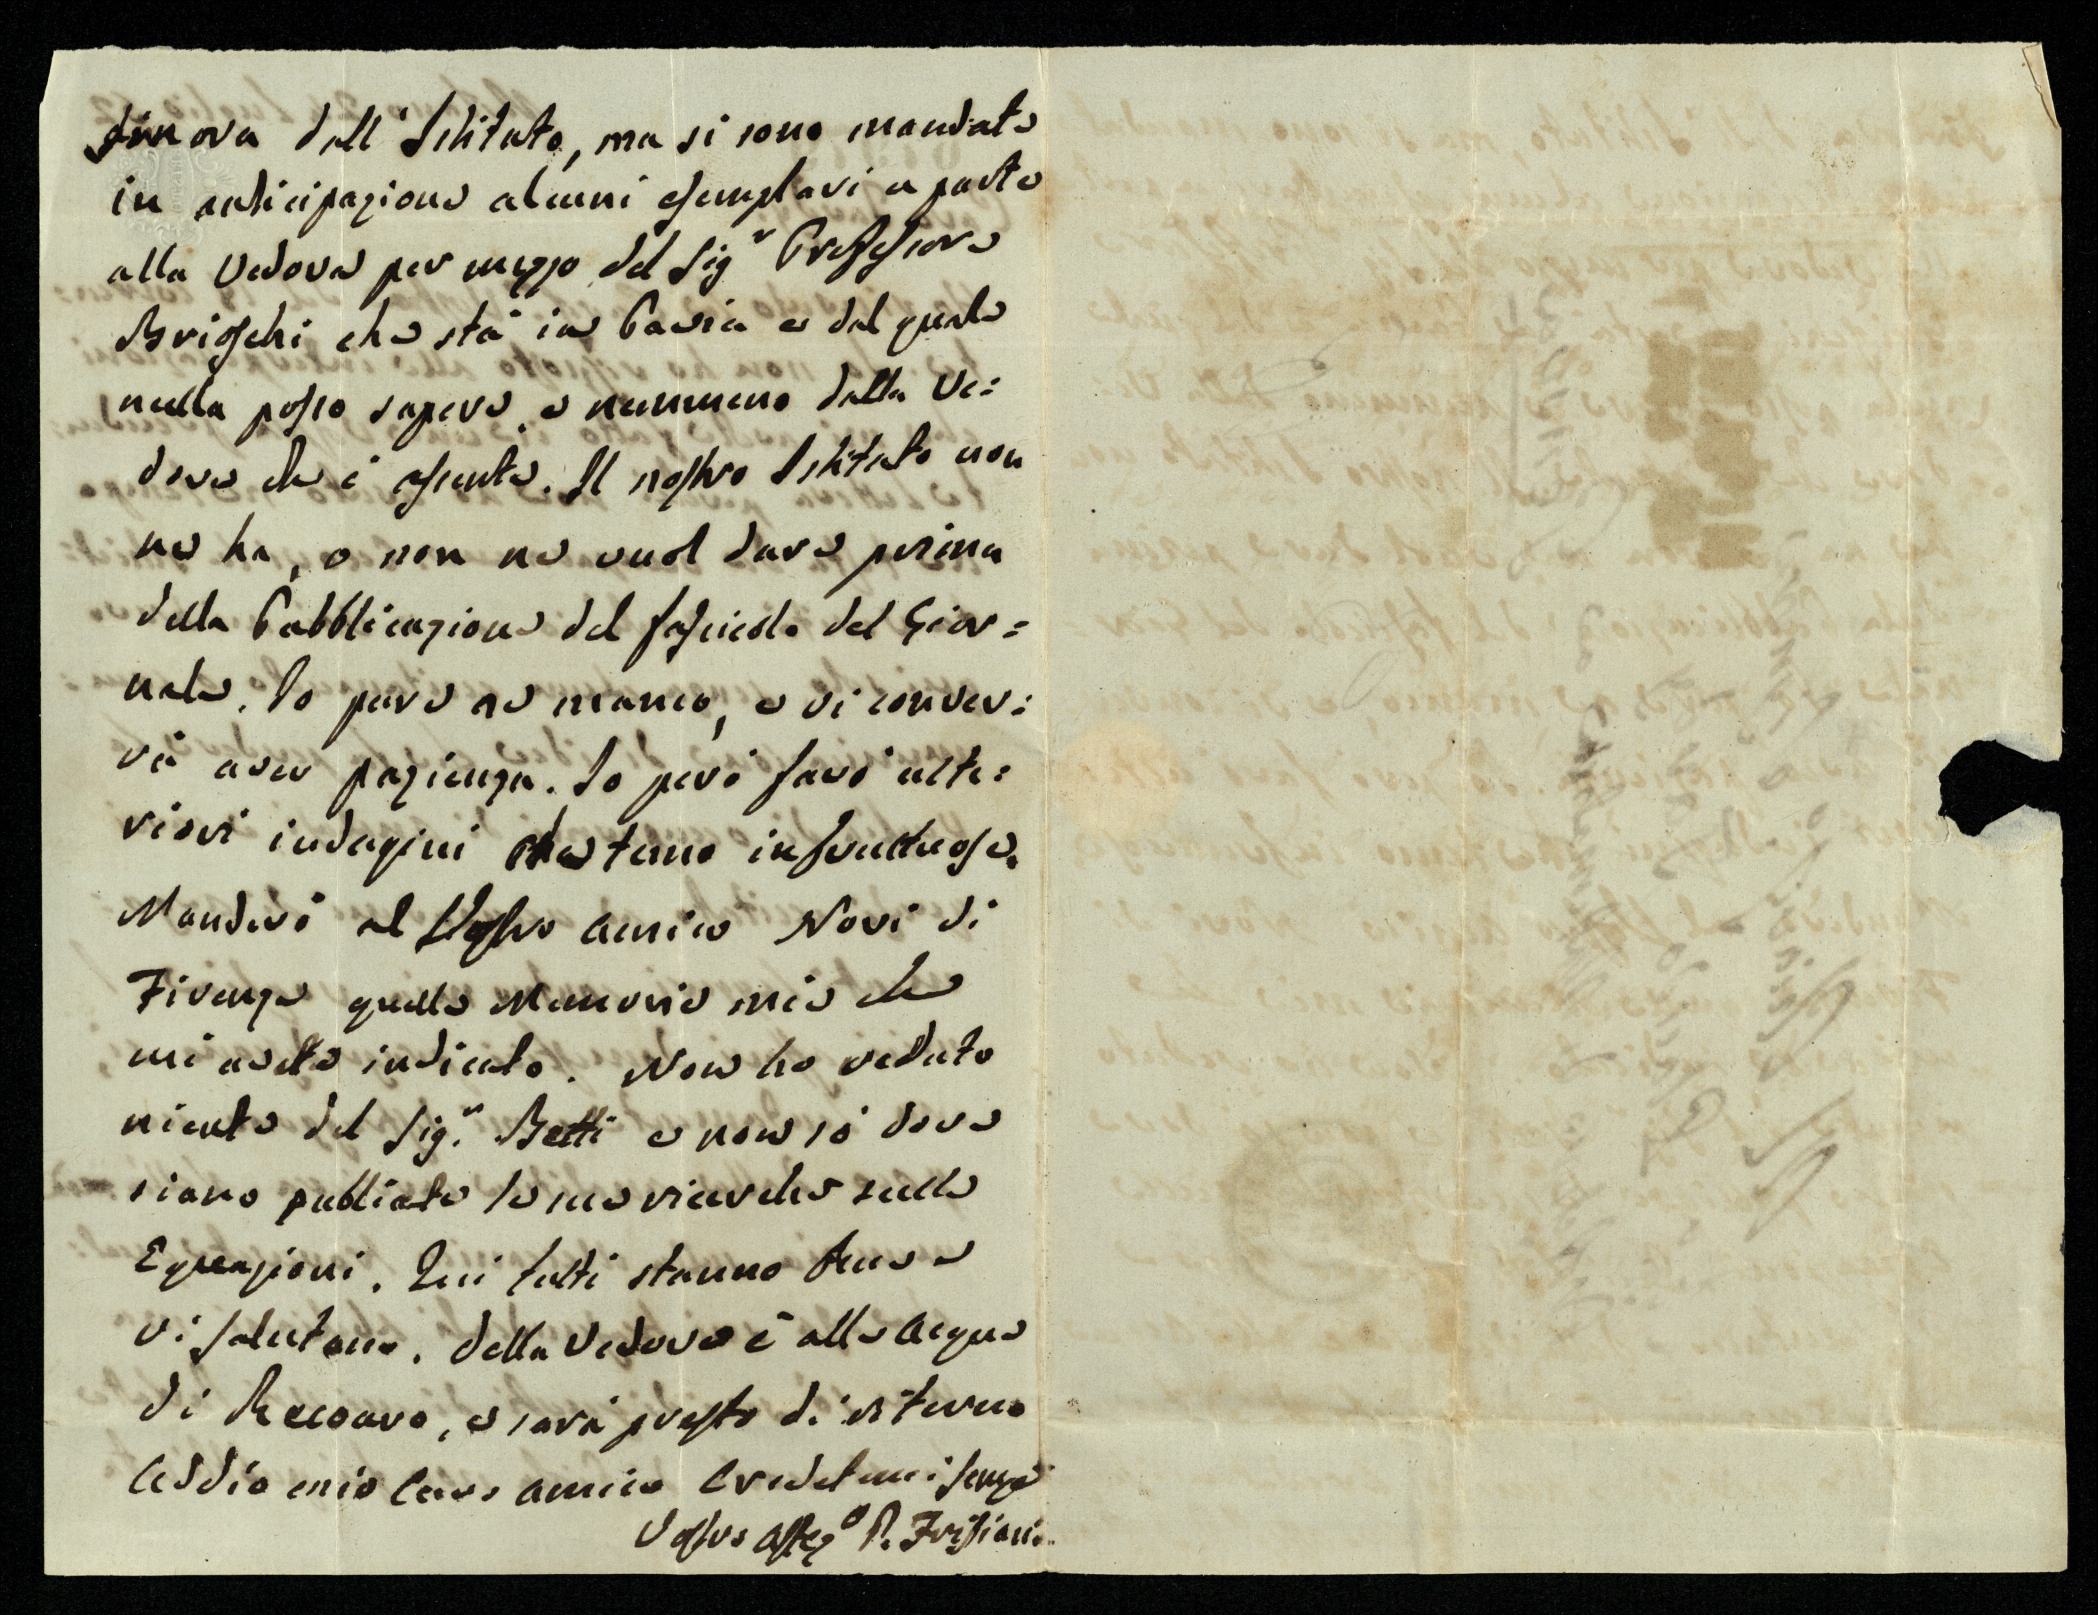 finora dell'Istituto, ma si sono mandate
in anticipazione alcuni esemplari a parte
alla Vedova per mezzo del Sig.r Professore
Brioschi che stà in Pavia e dal quale
nulla posso sapere, e nemmeno dalla Ve=
dova che è assente. Il nostro Istituto non
ne ha, o non ne vuol dare prima
della Pubblicazione del fascicolo del Gior=
nale. Io pure ne manco, e vi conver=
rà aver pazienza. Io però farò ulte=
riori indagini che temo infruttuose.
Manderò al Vostro amico Novi di
Firenze quelle Memorie mie che
mi avete indicato. Non ho veduto
niente del Sig.r Betti e non sò dove
siano publicate le sue ricerche sulle
Equazioni. Qui tutti stanno bene e
vi salutano. Della Vedova è alle Acque
di Recoaro, e sarà presto di ritorno
Addio mio Caro amico Credetemi sempre
Vostro Affez.o P. Frisiani